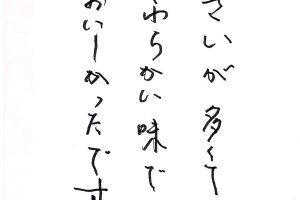 さいが多くて
わらかい味で
おいしかったです